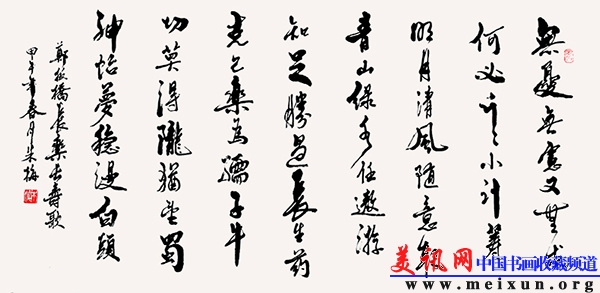 無憂無慮又無求
何必斤斤小計籌
明月清風隨意取
青山綠水任遨游
知足勝過長生药
克己樂為孺子牛
切莫得隴猶望蜀
神怡夢穩漫白頭
鄭板橋長樂長壽歌
甲午年春月朱梅
美讯网中国书画收藏频道
www.meixun.org